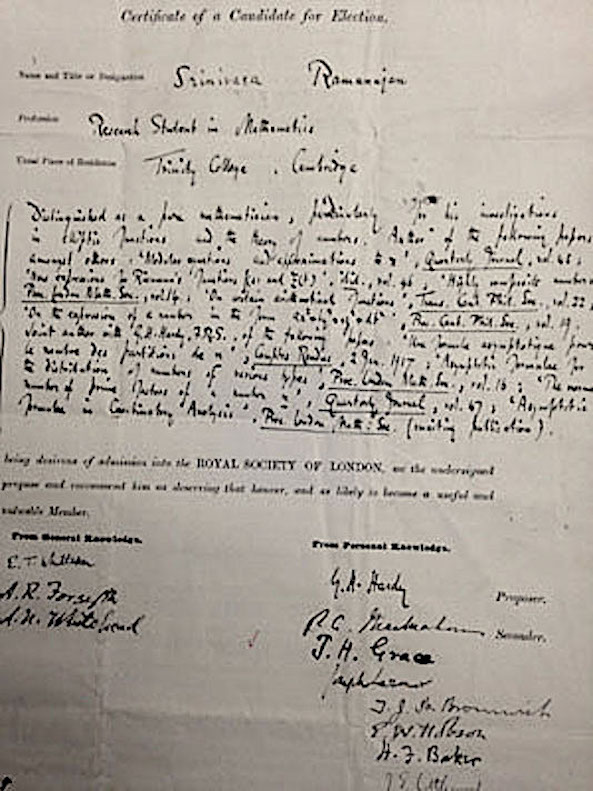 Certificate of a Candidate for Election.
Name and Title or Designation Srinivasa Ramanujan
Profession Research Student in Mathematics
Usual Place of Residence Trinity College, Cambridge
Distinguished as a pure mathematician, particularly for his investigations
in elliptic functions and the theory of numbers. Author of the following papers
amongst others: "Modular equations and approximations to π", Quarterly Journal, vol. 45;
"New expressions in Riemann's functions ξ(s) and Ξ(t)", ibid., vol. 46; "Highly composite numbers",
Proc. London Math. Soc., vol. 14; "On certain arithmetical functions", Trans. Camb. Phil. Soc., vol. 22;
"On the expression of a number in the form", Proc. Camb. Phil. Soc., vol. 19.
Joint author with G. H. Hardy, F.R.S., of the following papers: "Une formule asymptotique pour
le nombre des partitions de n", Comptes Rendus, 2 Jan. 1917; "Asymptotic formulae for
the distribution of numbers of various types", Proc. London Math. Soc., vol. 16; "The normal
number of prime factors of a number n", Quarterly Journal, vol. 47; "Asymptotic
formulae in Combinatory Analysis", Proc. London Math. Soc. (awaiting publication).
being desirous of admission into the ROYAL SOCIETY OF LONDON, we the undersigned
propose and recommend him as deserving that honour, and as likely to become a useful and
valuable Member.
From General Knowledge.
E. T. Whittaker
A. R. Forsyth
A. N. Whitehead
From Personal Knowledge.
G. H. Hardy Proposer.
P. A. MacMahon Seconder.
J. H. Grace
Joseph Larmor
T. J. I'A. Bromwich
E. W. Hobson
H. F. Baker
J. E. Littlewood